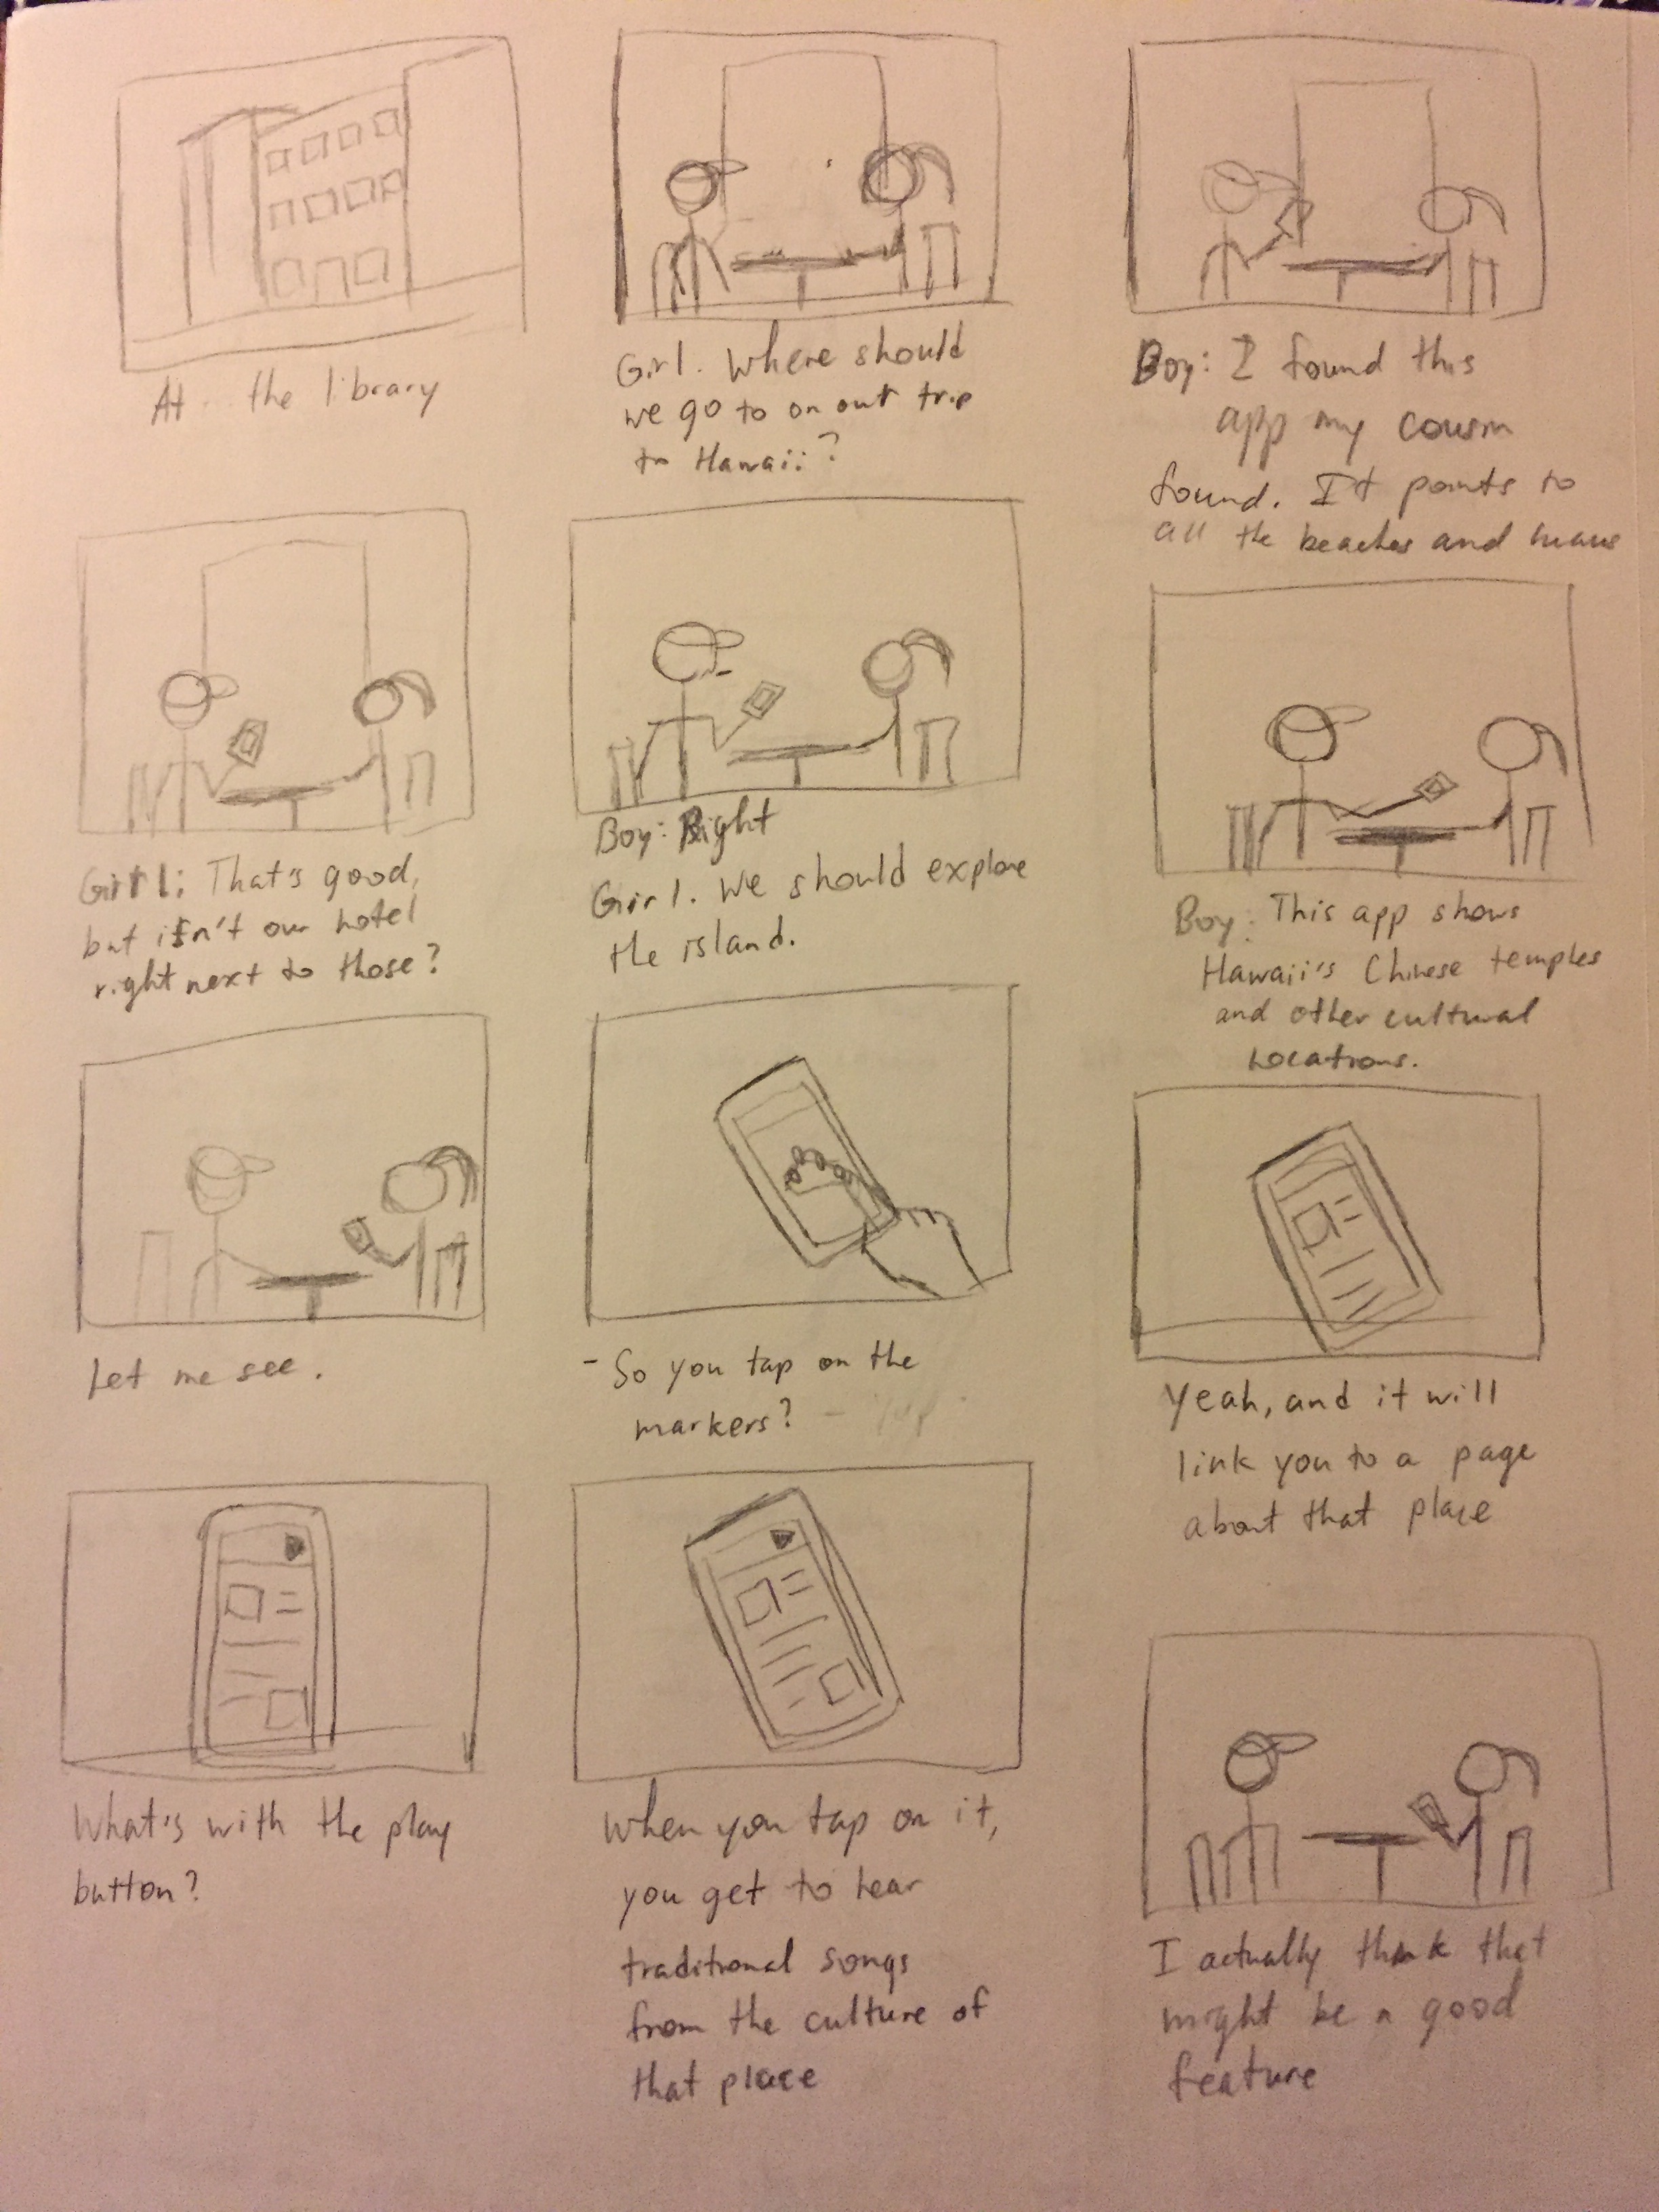 At... the library
Girl. Where should
we go to on out trip
to Hawaii?
Boy: I found this
app my cousin
found. It points to
all the beaches and
Girl: That's good,
but isn't our hotel
right next to those?
Boy: Right
Girl. We should explore
the island.
Boy: This app shows
Hawaii's Chinese temples
and other cultural
Locations.
Let me see.
- So you tap on the
markers? - Yup
Yeah, and it will
link you to a page
about that place
What's with the play
button?
When you tap on it,
you get to hear
traditional songs
from the culture of
that place
I actually think that
might be a good
feature